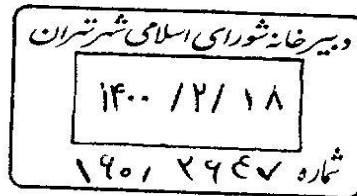 دبیرخانه شورای اسلامی شهر تهران
۱۴۰۰ / ۲ / ۱۸
شماره ۱۶۰/ ۲۶۴۷